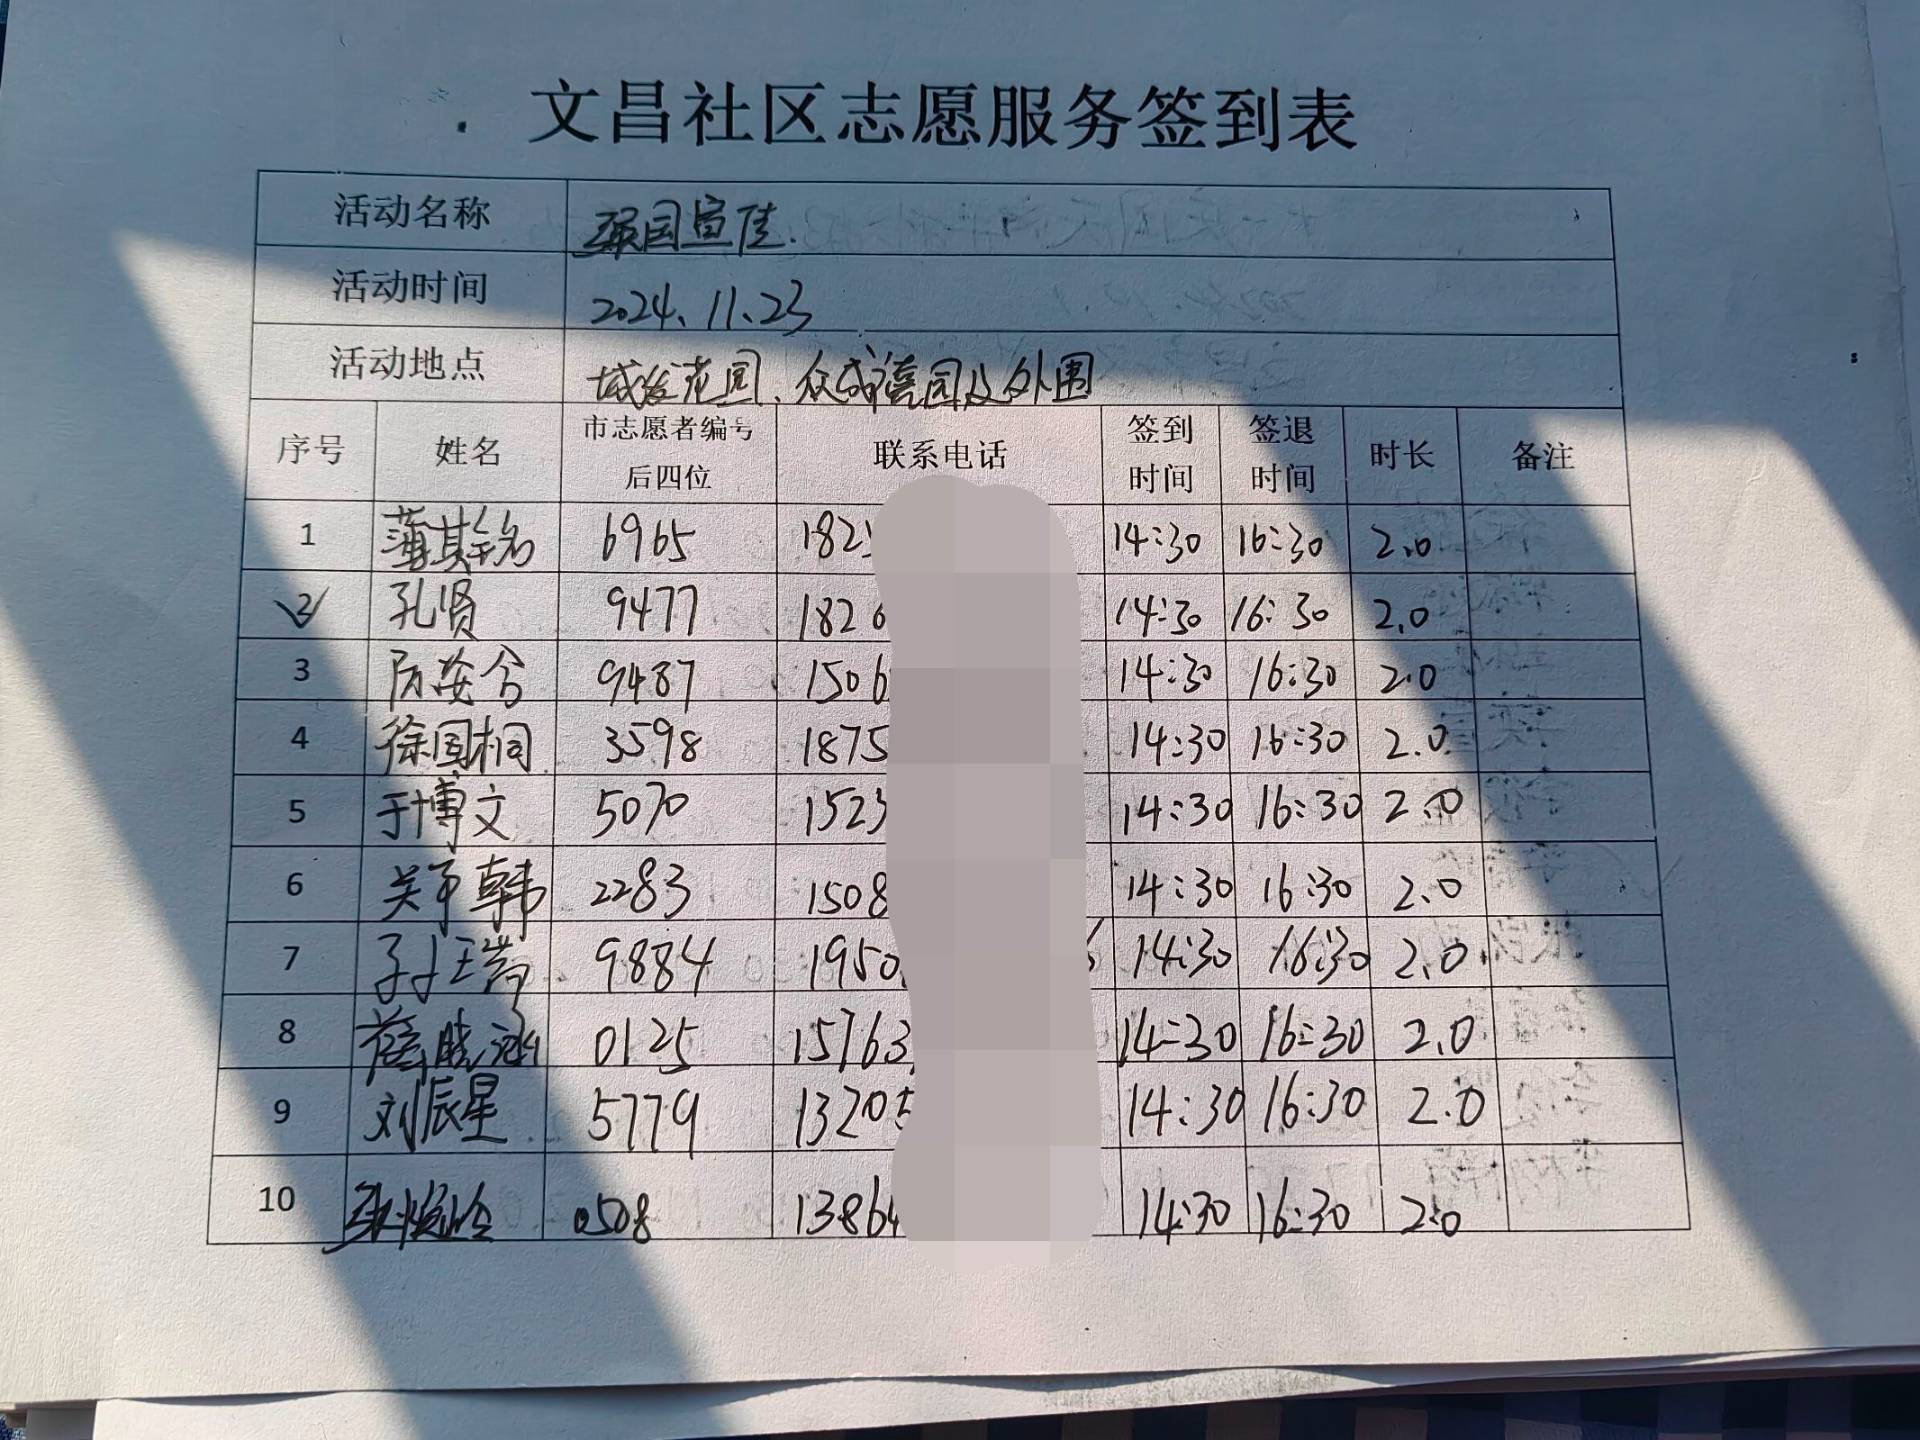 文昌社区志愿服务签到表
活动名称 强国宣传.
活动时间 2024.11.23
活动地点 城发花园、众成禧园及外围
序号 姓名 市志愿者编号后四位 联系电话 签到时间 签退时间 时长 备注
1 6965 182 14:30 16:30 2.0
2 孔贤 9477 1826 14:30 16:30 2.0
3 9487 1506 14:30 16:30 2.0
4 徐国桐 3598 1875 14:30 16:30 2.0
5 于博文 5070 1523 14:30 16:30 2.0
6 2283 1508 14:30 16:30 2.0
7 9884 1950 14:30 16:30 2.0
8 0125 15763 14:30 16:30 2.0
9 刘辰星 5779 13205 14:30 16:30 2.0
10 0508 13864 14:30 16:30 2.0